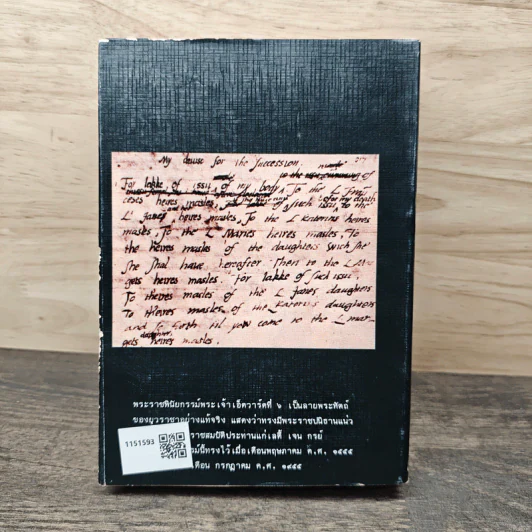 My deuise for the Succession.
For lakke of issu of my body To the L Fran
ceses heires masles, of such issu to the
L' Janes heires masles, To the L Katerins heires
masles, To the L Maries heires masles, To
the heires masles of the daughters wich she
She shal have hereafter. Then to the L Mar
gets heires masles. For lakke of such issu
To theires masles of the L Janes daughters
To theires masles of the L Katerins daughters
and so forth til yow come to the L mar
daughters
gets heires masles.
พระราชพินัยกรรมพระเจ้าเอ็ดวาร์ดที่ ๖ เป็นลายพระหัตถ์
ของยุวราชาอย่างแท้จริง แสดงว่าทรงมีพระราชปณิธานแน่ว
ราชสมบัติประทานแก่เลดี้ เจน เกรย์
นี้ทรงไว้เมื่อเดือนพฤษภาคม ค.ศ. ๑๕๕๕
เดือน กรกฎาคม ค.ศ. ๑๕๕๕
1151593